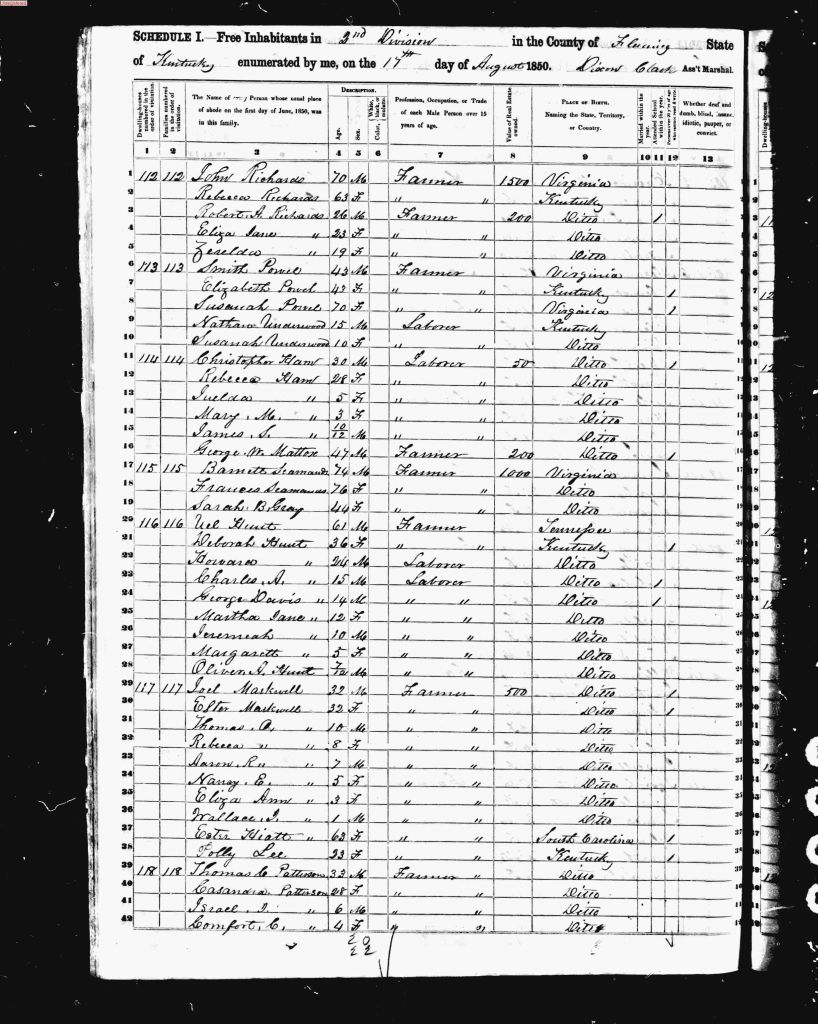 SCHEDULE I.—Free Inhabitants in 2nd Division in the County of Fleming State
of Kentucky enumerated by me, on the 17th day of August 1850. Dixon Clack Ass't Marshal.
Dwelling-houses numbered in the order of visitation. Families numbered in the order of visitation. The Name of every Person whose usual place of abode on the first day of June, 1850, was in this family. DESCRIPTION. Age. Sex. Color, White, black, or mulatto. Profession, Occupation, or Trade of each Male Person over 15 years of age. Value of Real Estate owned. PLACE OF BIRTH. Naming the State, Territory, or Country. Married within the year. Attended School within the year. Whether deaf and dumb, blind, insane, idiotic, pauper, or convict.
1 2 3 4 5 6 7 8 9 10 11 12 13
1 112 112 John Richards 70 M Farmer 1500 Virginia
2 Rebecca Richards 63 F " " Kentucky
3 Robert A. Richards 26 M Farmer 200 Ditto 1
4 Eliza Jane " 23 F " " Ditto
5 Zerelda " 19 F " " Ditto
6 113 113 Smith Powel 43 M Farmer Virginia
7 Elizabeth Powel 47 F " " Kentucky 1
8 Susanah Powel 70 F " " Virginia 1
9 Nathan Underwood 15 M Laborer Kentucky
10 Susanah Underwood 10 F " " Ditto
11 114 114 Christopher Ham 30 M Laborer 50 Ditto 1
12 Rebecca Ham 28 F " " Ditto
13 " 5 F " " Ditto
14 Mary M. " 3 F " " Ditto
15 James S. " 10/12 M " " Ditto
16 George W. Mattox 47 M Farmer 200 Ditto 1
17 115 115 Barnett 74 M Farmer 1000 Virginia
18 Frances 76 F " " Ditto
19 Sarah B. Gray 44 F " " Ditto
20 116 116 Uel Hunt 61 M Farmer Tennessee
21 Deborah Hunt 36 F " " Kentucky 1
22 Howard " 24 M Laborer Ditto
23 Charles A. " 15 M Laborer Ditto 1
24 George Davis " 14 M " " Ditto 1
25 Martha Jane " 12 F " " Ditto
26 Jeremeah " 10 M " " Ditto
27 Margarett " 5 F " " Ditto
28 Oliver J. Hunt 7/12 M " " Ditto
29 117 117 Joel Markwell 32 M Farmer 500 Ditto 1
30 Ester Markwell 32 F " " Ditto 1
31 Thomas O. " 10 M " " Ditto
32 Rebecca " " 8 F " " Ditto
33 Aaron R. " 7 M " " Ditto
34 Nancy E. " 5 F " " Ditto
35 Eliza Ann " 3 F " " Ditto
36 Wallace J. " 1 M " " Ditto
37 Ester Hiatt " 63 F " " South Carolina 1
38 Polly Lee 23 F " " Kentucky 1
39 118 118 Thomas C. Patterson 33 M Farmer " Ditto
40 Casandra Patterson 28 F " " Ditto
41 Israel J. " 6 M " " Ditto
42 Comfort C. " 4 F " " Ditto